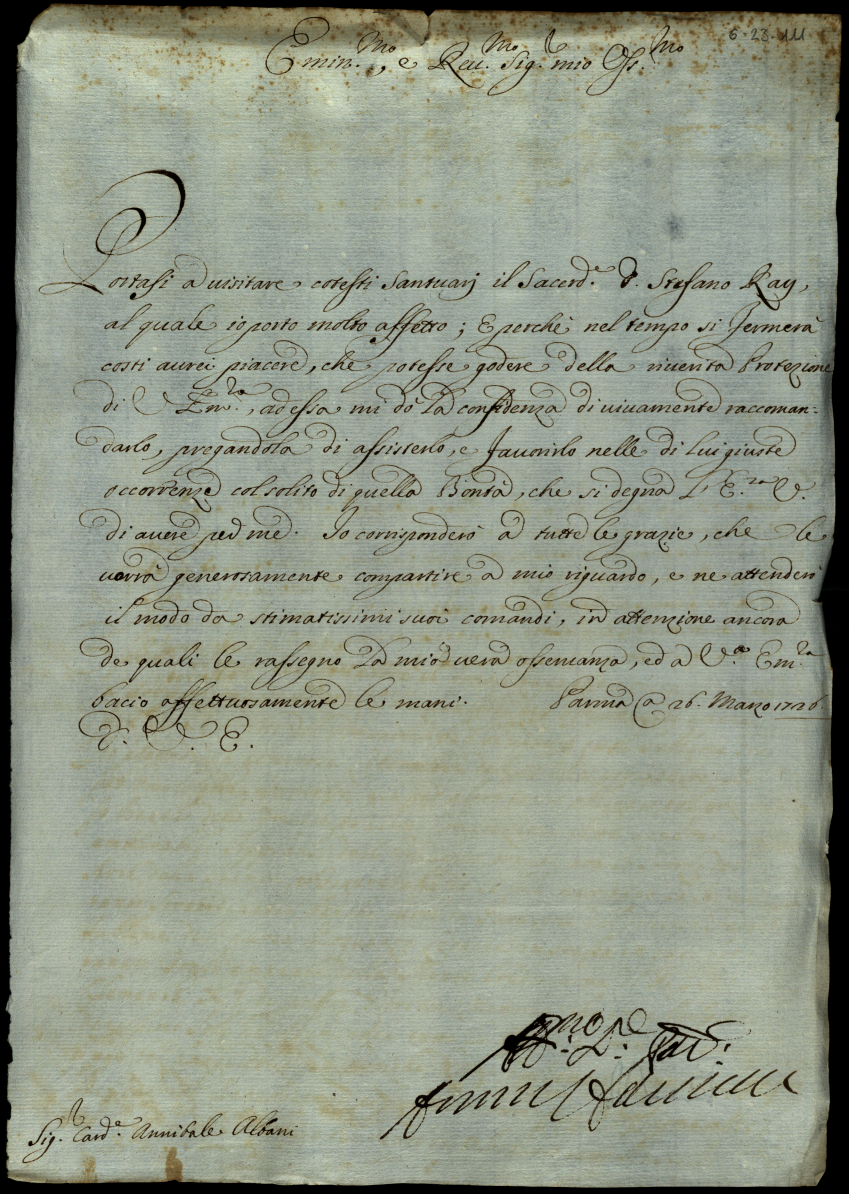 6-28-111
Emin.mo, e Reu.mo Sig.r mio Oss.mo
Portasi a uisitare cotesti Santuarj il Sacerd.e D. Stefano Ray,
al quale io porto molto affetto; E perchè nel tempo si fermerà
costì aurei piacere, che potesse godere della riuerita Protezione
di V. Em.za, ad essa mi dò la confidenza di uiuamente raccoman-
darlo, pregandola di assisterlo, e fauorirlo nelle di Lui giuste
occorrenze col solito di quella Bontà, che si degna L'E.za V.
di auere per me. Io corrisponderò a tutte le grazie, che le
uerrà generosamente compartire a mio riguardo, e ne attenderò
il modo da stimatissimi suoi comandi, in attenzione ancora
de quali le rassegno la mia uera osseruanza, ed a V.a Em.za
bacio affettuosamente le mani. Parma a 26. Marzo 1726.
D. V. E.
Aff.mo
Sig.r Card.e Annibale Albani